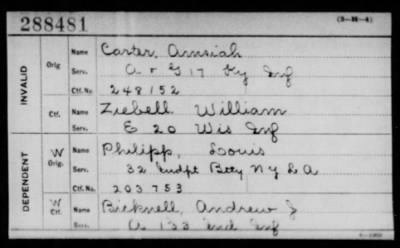 288481
(3-M-4)
INVALID
Orig
Name Carter, Amsiah
Serv. A & G 17 Ky Inf
Ctf. No. 248152
Ctf.
Name Ziebell William
Serv. E 20 Wis Inf
DEPENDENT
W
Orig.
Name Philipp, Louis
Serv. 32 Indpt Btty N Y L A
Ctf. No. 203753
W
Ctf.
Name Bicknell, Andrew J
Serv. A 133 Ind Inf